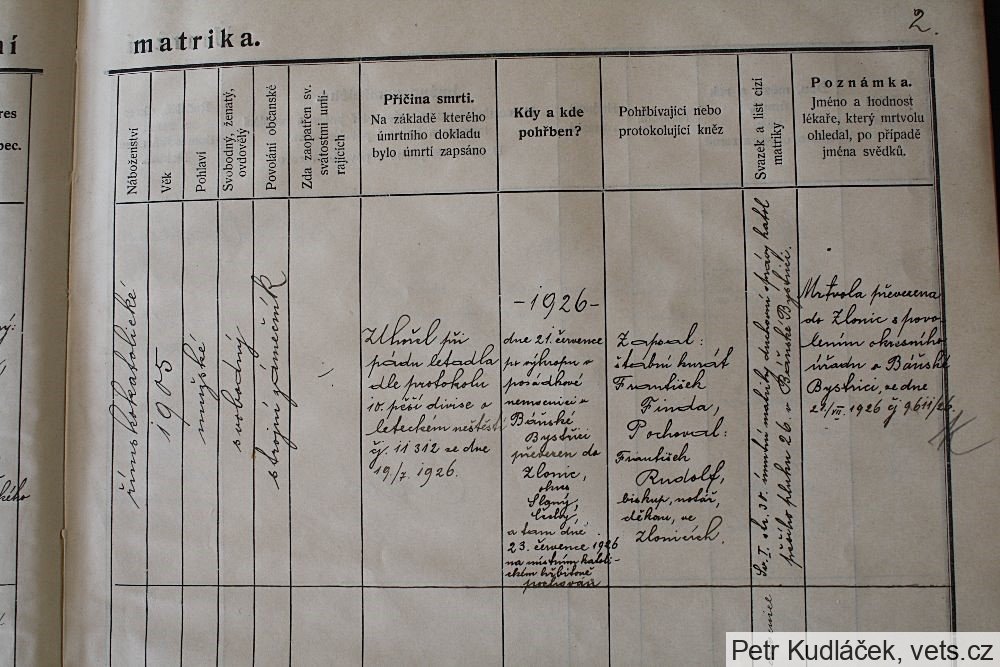 ní
matrika.
2.
res
bec.
Náboženství
Věk
Pohlaví
Svobodný, ženatý,
ovdovělý
Povolání občanské
Zda zaopatřen sv.
svátostmi umí-
rajících
Příčina smrti.
Na základě kterého
úmrtního dokladu
bylo úmrtí zapsáno
Kdy a kde
pohřben?
Pohřbívající nebo
protokolující kněz
Svazek a list cizí
matriky
Poznámka.
Jméno a hodnost
lékaře, který mrtvolu
ohledal, po případě
jména svědků.
římskokatolické
1905
mužské
svobodný
strojní zámečník
Uhořel při
pádu letadla
dle protokolu
10. pěší divise o
leteckém neštěstí
čj. 11312 ze dne
19./7. 1926.
-1926-
dne 21. července
po výkropu v
posádkové
nemocnici v
Báňské
Bystřici
převezen do
Zlonic,
okres
Slaný,
Čechy,
a tam dne
23. července 1926
na místním katoli-
ckém hřbitově
pochován
Zapsal:
štábní kurát
František
Finda,
Pochoval:
František
Rudolf,
biskup. notář,
děkan, ve
Zlonicích.
Sv. I. str. 30. úmrtní matriky duchovní správy katol
pěšího pluku 26. v Báňské Bystřici.
Mrtvola převezena
do Zlonic s povo-
lením okresního
úřadu v Báňské
Bystřici, ze dne
21/VII. 1926 čj 9611/26.
Petr Kudláček, vets.cz